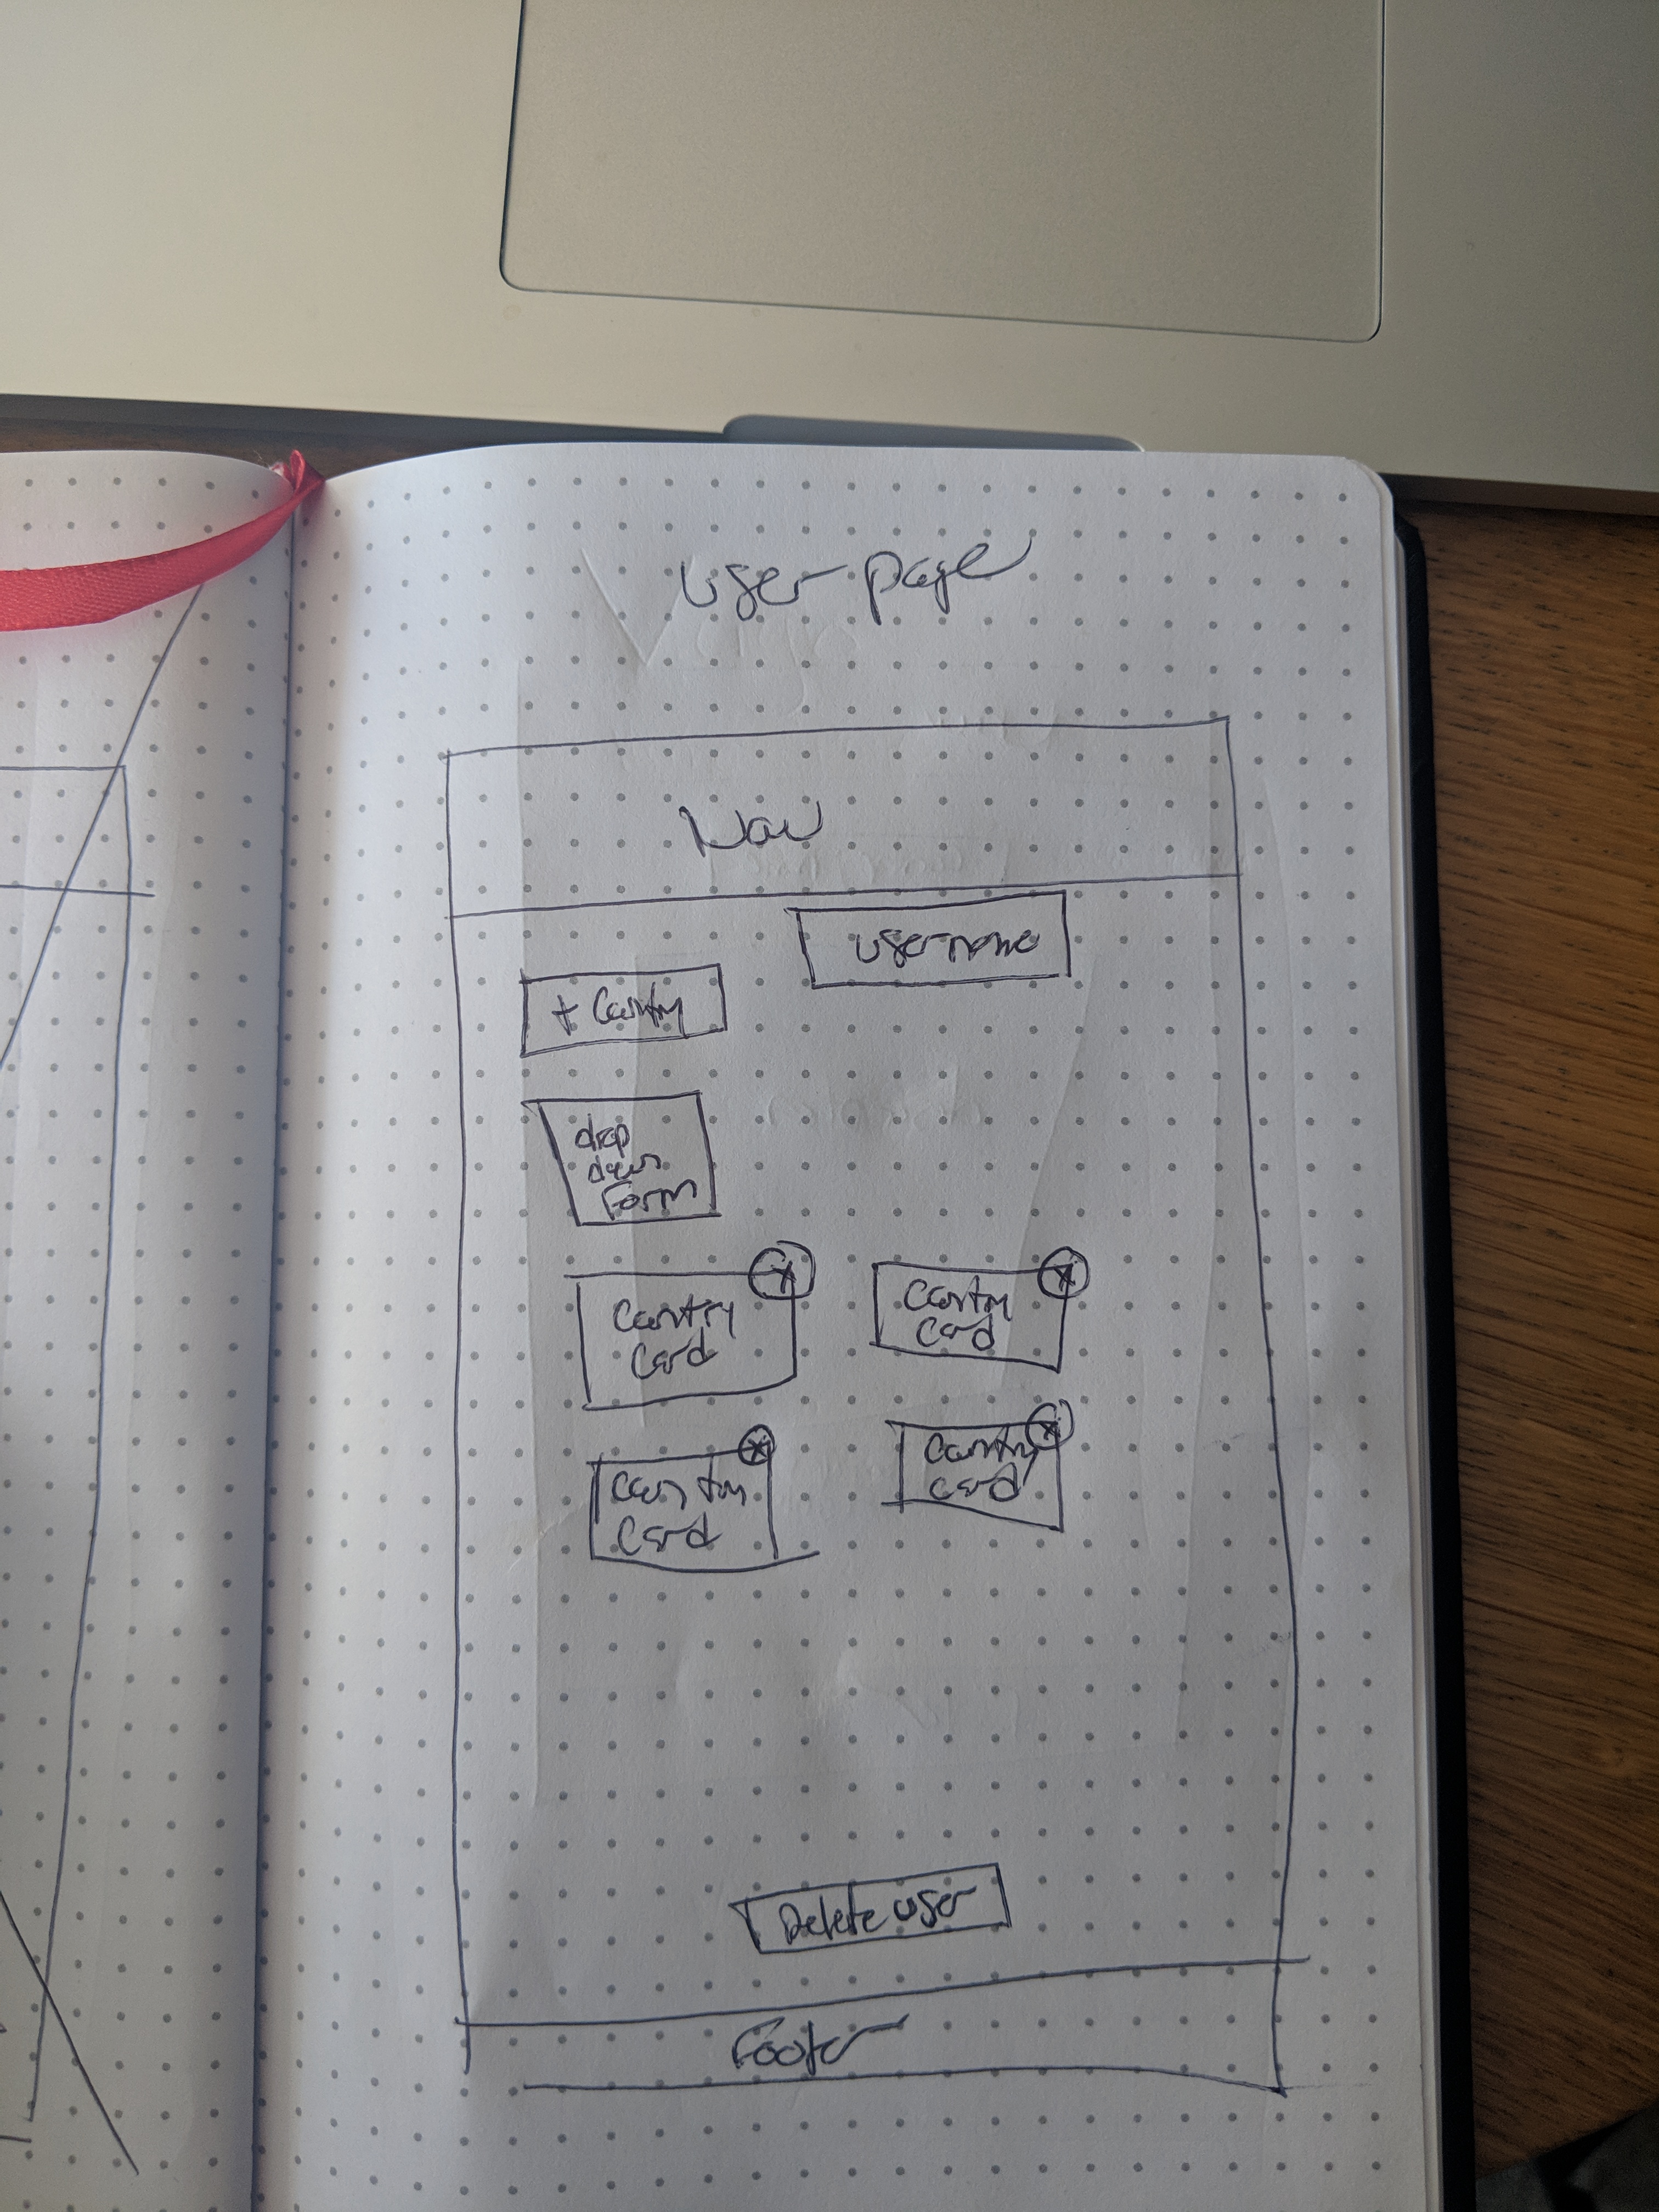 user page
Nav
username
+ Country
drop
down
Form
Country
Card
Country
Card
Country
Card
Country
Card
Delete user
Footer